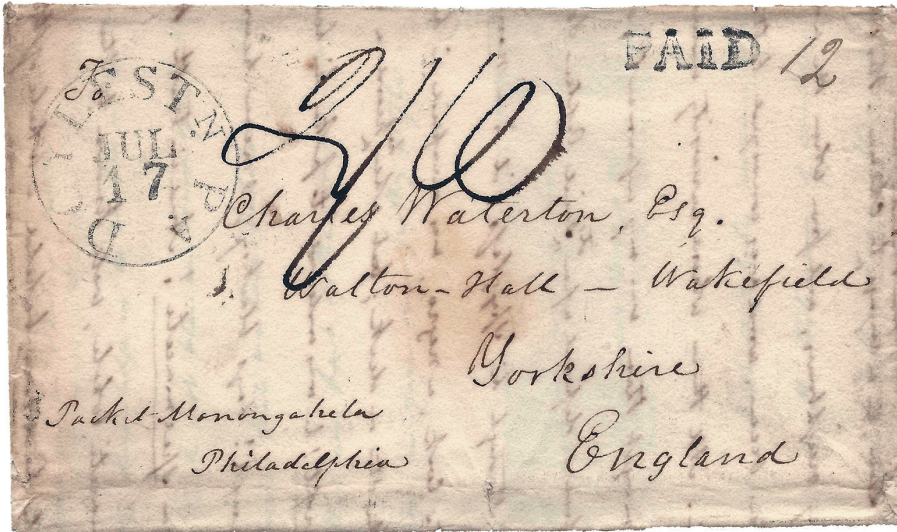 PAID 12
To
DOYLEST'N. PA
JUL
17
2/6
Charles Waterton, Esq.
Walton-Hall - Wakefield
Yorkshire
England
Packet Monongahela
Philadelphia